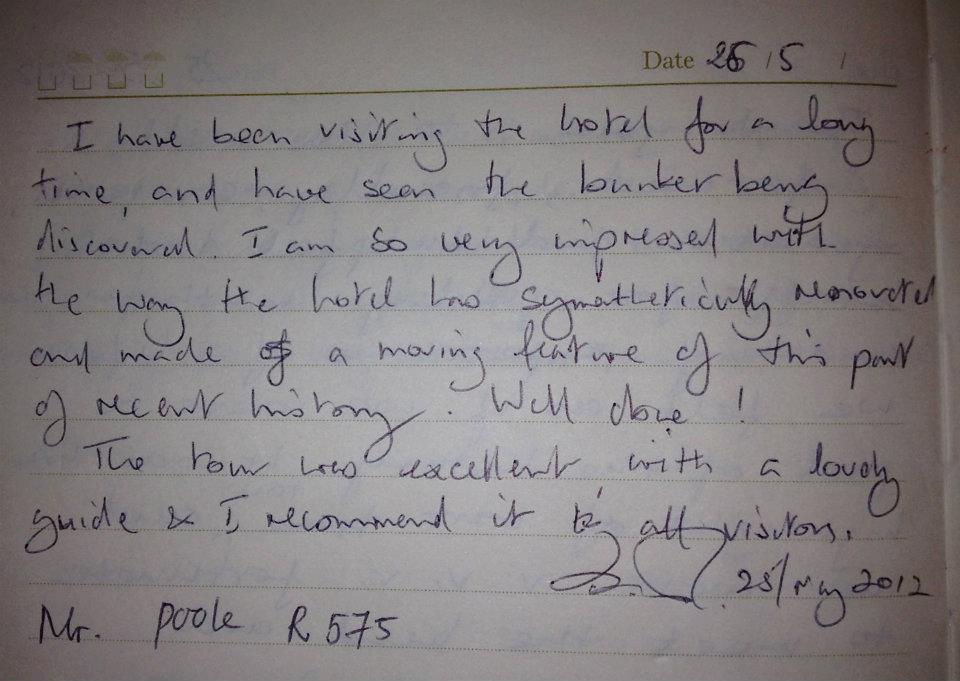 Date 26 / 5 /
I have been visiting the hotel for a long
time, and have seen the bunker being
discovered. I am so very impressed with
the way the hotel has symathetically renovated
and made of a moving feature of this part
of recent history. Well done!
The tour was excellent with a lovely
guide & I recommend it to all visitors.
25/May 2012
Mr. Poole R575